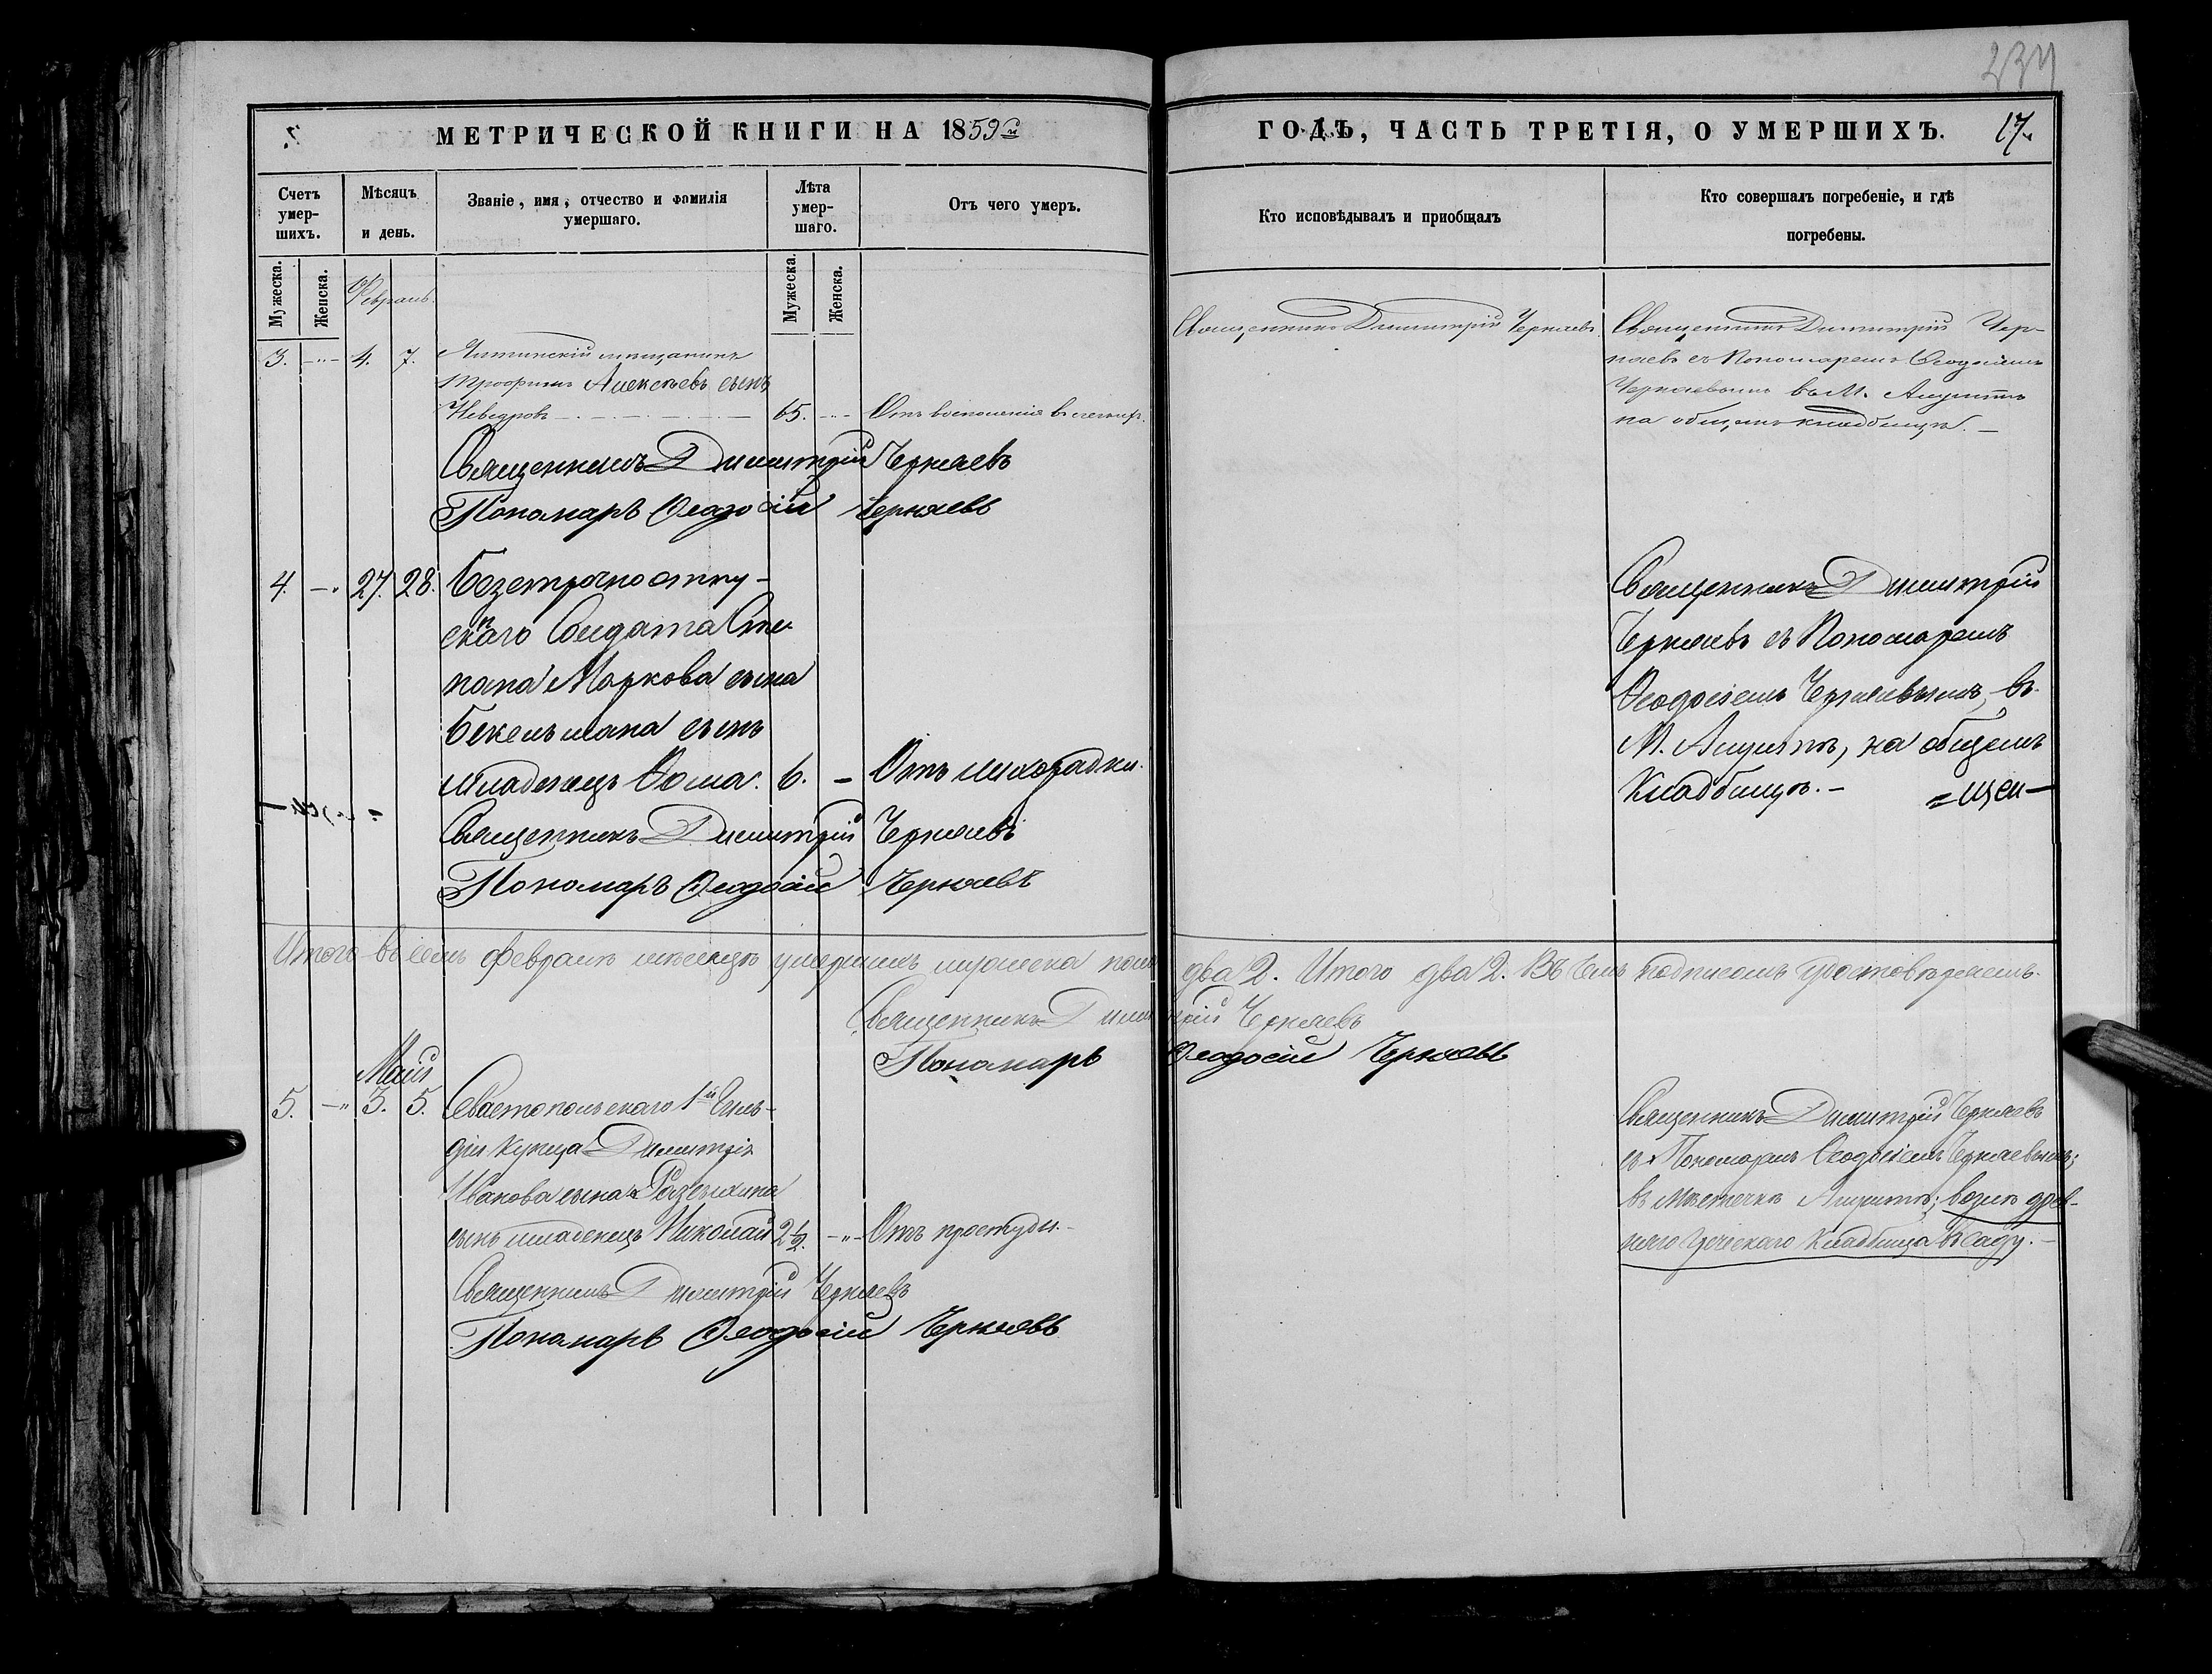 234
МЕТРИЧЕСКОЙ КНИГИ НА 1859й
ГОДЪ, ЧАСТЬ ТРЕТІЯ, О УМЕРШИХЪ.
17.
Счетъ умер-шихъ.
Мѣсяцъ и день.
Званіе, имя, отчество и фамилія умершаго.
Лѣта умер-шаго.
Отъ чего умеръ.
Кто исповѣдывалъ и приобщалъ
Кто совершалъ погребеніе, и гдѣ погребены.
Мужеска.
Женска.
Мужеска.
Женска.
Февраль.
3. 4. 7.
мѣщанинъ
Трофимъ Алексѣевъ сынъ
65. Отъ воспаленія въ
Священникъ Димитрій Черняевъ
Священникъ Димитрій Чер-
няевъ съ Пономаремъ Ѳеодосіемъ
Черняевымъ въ М. Алуштѣ
на общемъ кладбищѣ.
Священникъ Димитрій Черняевъ
Пономарь Ѳеодосій Черняевъ
4. 27. 28. Безсрочноотпу-
скнаго Солдата Сте-
пана Маркова сына
Бекельмана сынъ
младенецъ Ѳома. 6. Отъ лихорадки.
Священникъ Димитрій
Черняевъ съ Пономаремъ
Ѳеодосіемъ Черняевымъ, въ
М. Алуштѣ, на общемъ
Кладбищѣ. =щен—
Священникъ Димитрій Черняевъ
Пономарь Ѳеодосій Черняевъ
Итого въ семъ Февралѣ мѣсяцѣ умершихъ мужеска пола два 2. Итого два 2. Въ чемъ подписомъ удостовѣряемъ.
Священникъ Димитрій Черняевъ
Пономарь Ѳеодосій Черняевъ
Май
5. 3. 5. Севастопольскаго 1й Гиль-
діи Купца Димитрія
Иванова сына
сынъ младенецъ Николай 2½. Отъ простуды.
Священникъ Димитрій Черняевъ
съ Пономаремъ Ѳеодосіемъ Черняевымъ;
въ мѣстечкѣ Алуштѣ; возлѣ древ-
няго Греческаго Кладбища въ саду.
Священникъ Димитрій Черняевъ
Пономарь Ѳеодосій Черняевъ